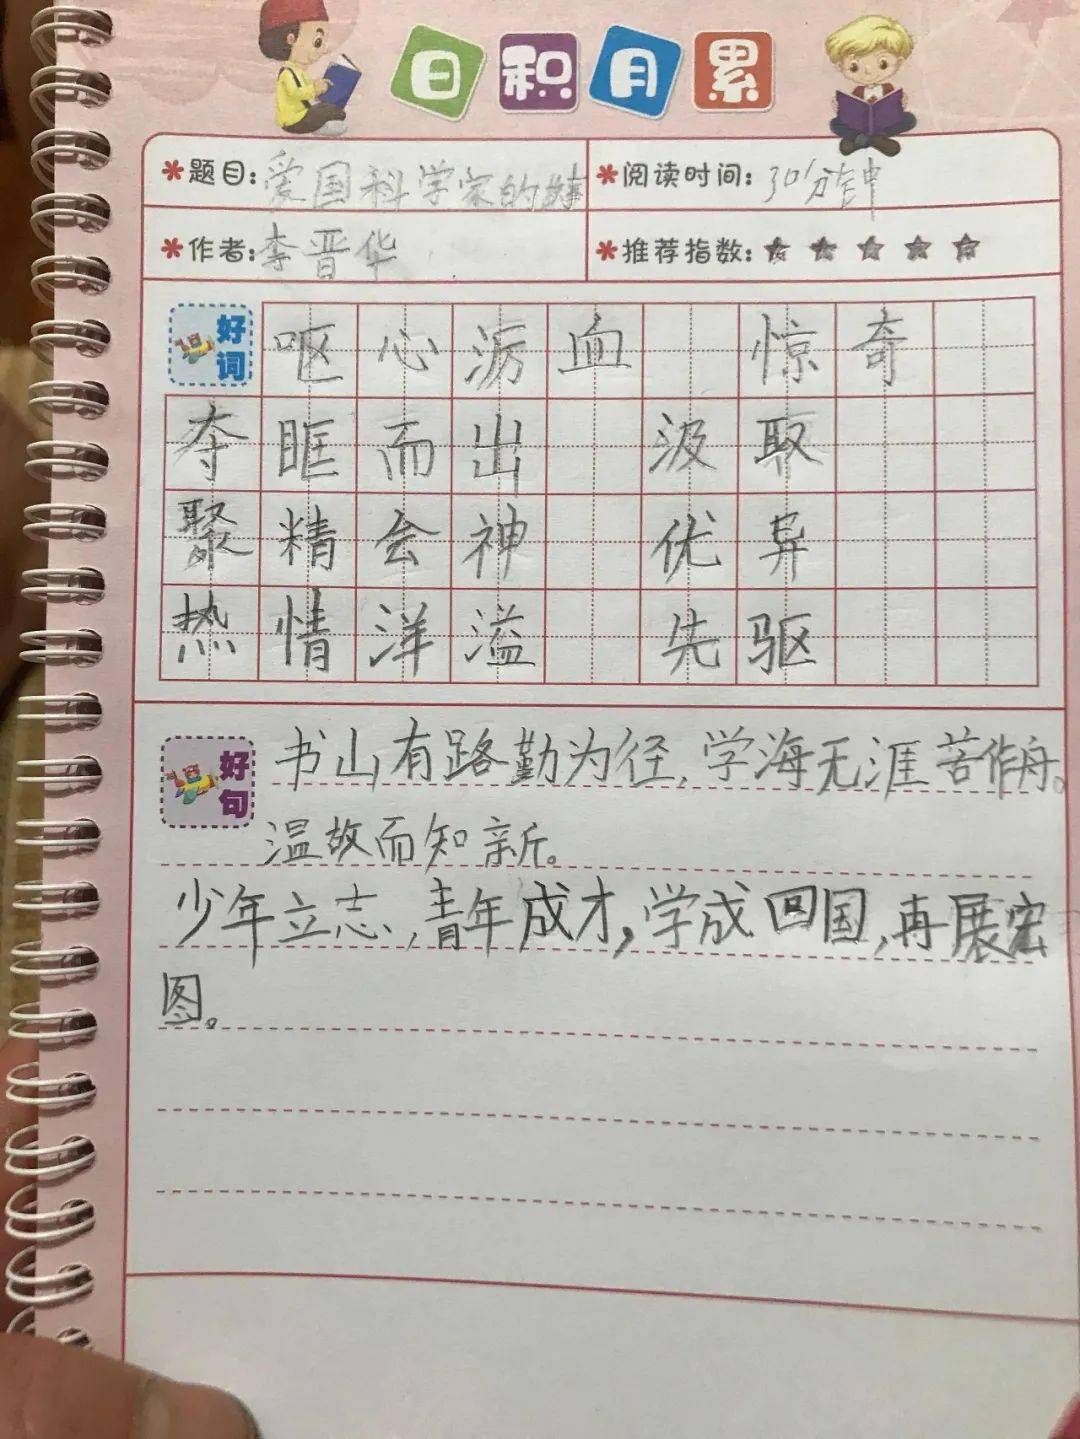 日积月累
*题目:爱国科学家的故事 *阅读时间:30分钟
*作者:李晋华 *推荐指数:★★★★★
好词 呕心沥血 惊奇
夺眶而出 汲取
聚精会神 优异
热情洋溢 先驱
好句 书山有路勤为径,学海无涯苦作舟。
温故而知新。
少年立志,青年成才,学成回国,再展宏
图。